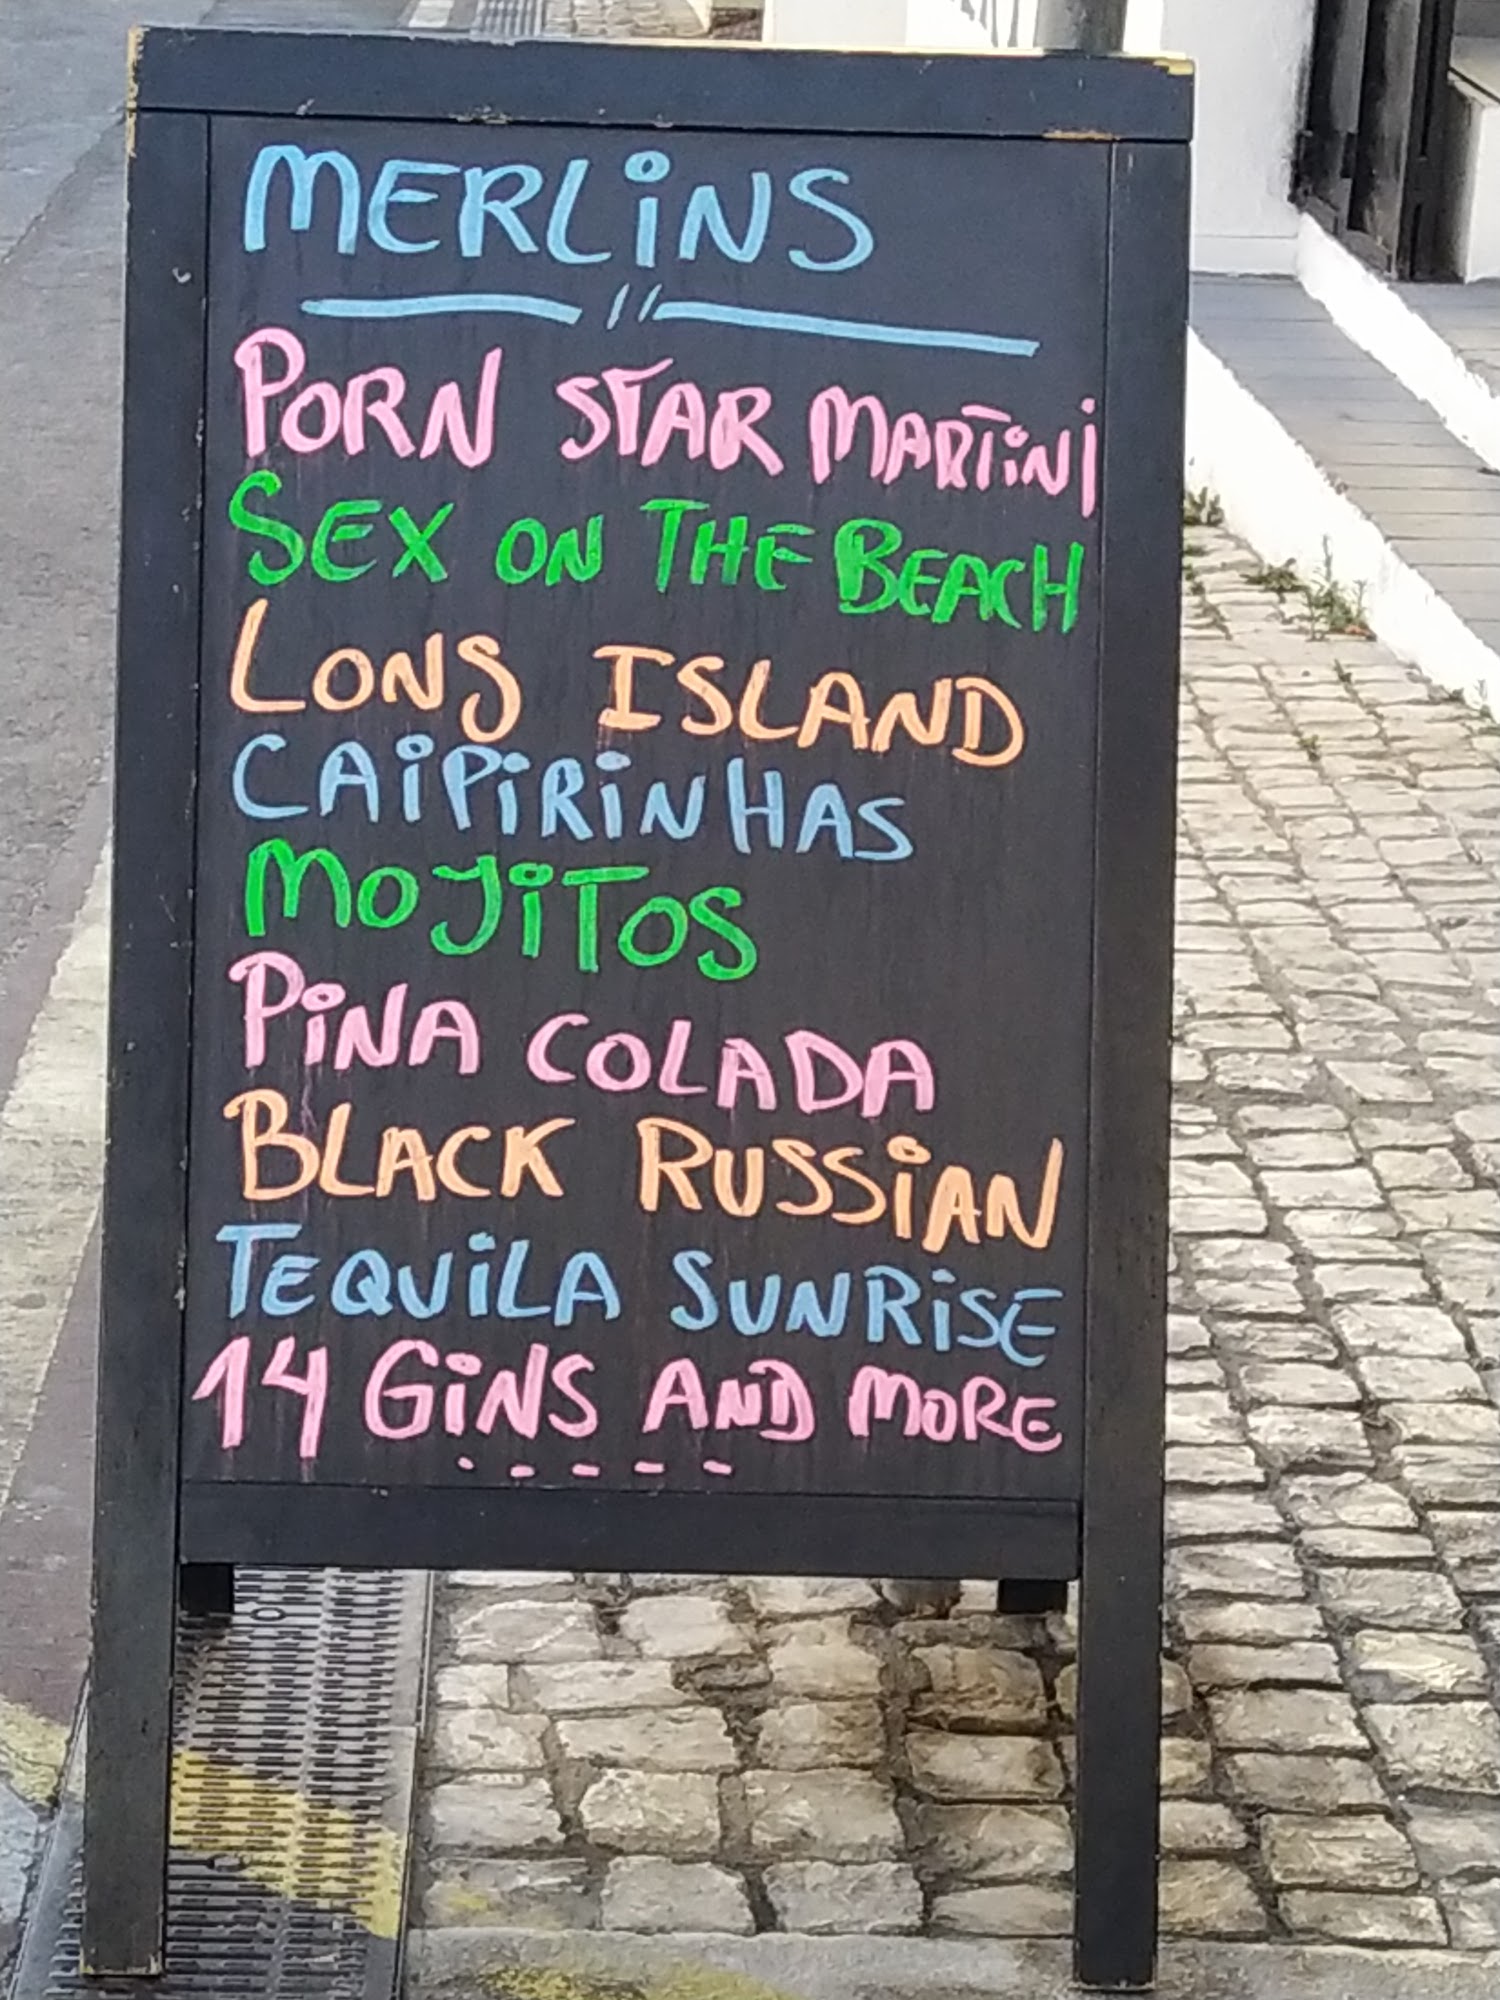 MERLiNS
PORN STAR MARTiNi
SEX ON THE BEACH
LONG ISLAND
CAiPiRiNHAS
MOJiTOS
PiNA COLADA
BLACK RUSSiAN
TEQUiLA SUNRiSE
14 GiNS AND MORE
- - - - -